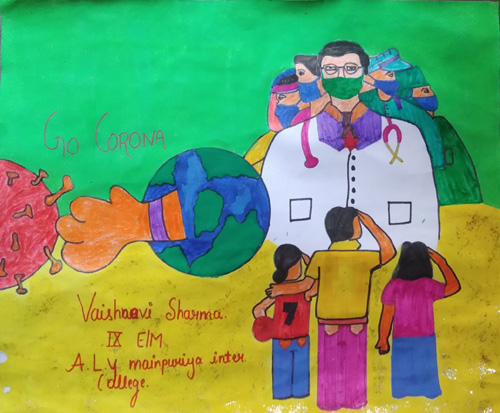 Go CORONA
7
Vaishnavi Sharma.
IX E/M
A.L.y mainpuriya inter
College.